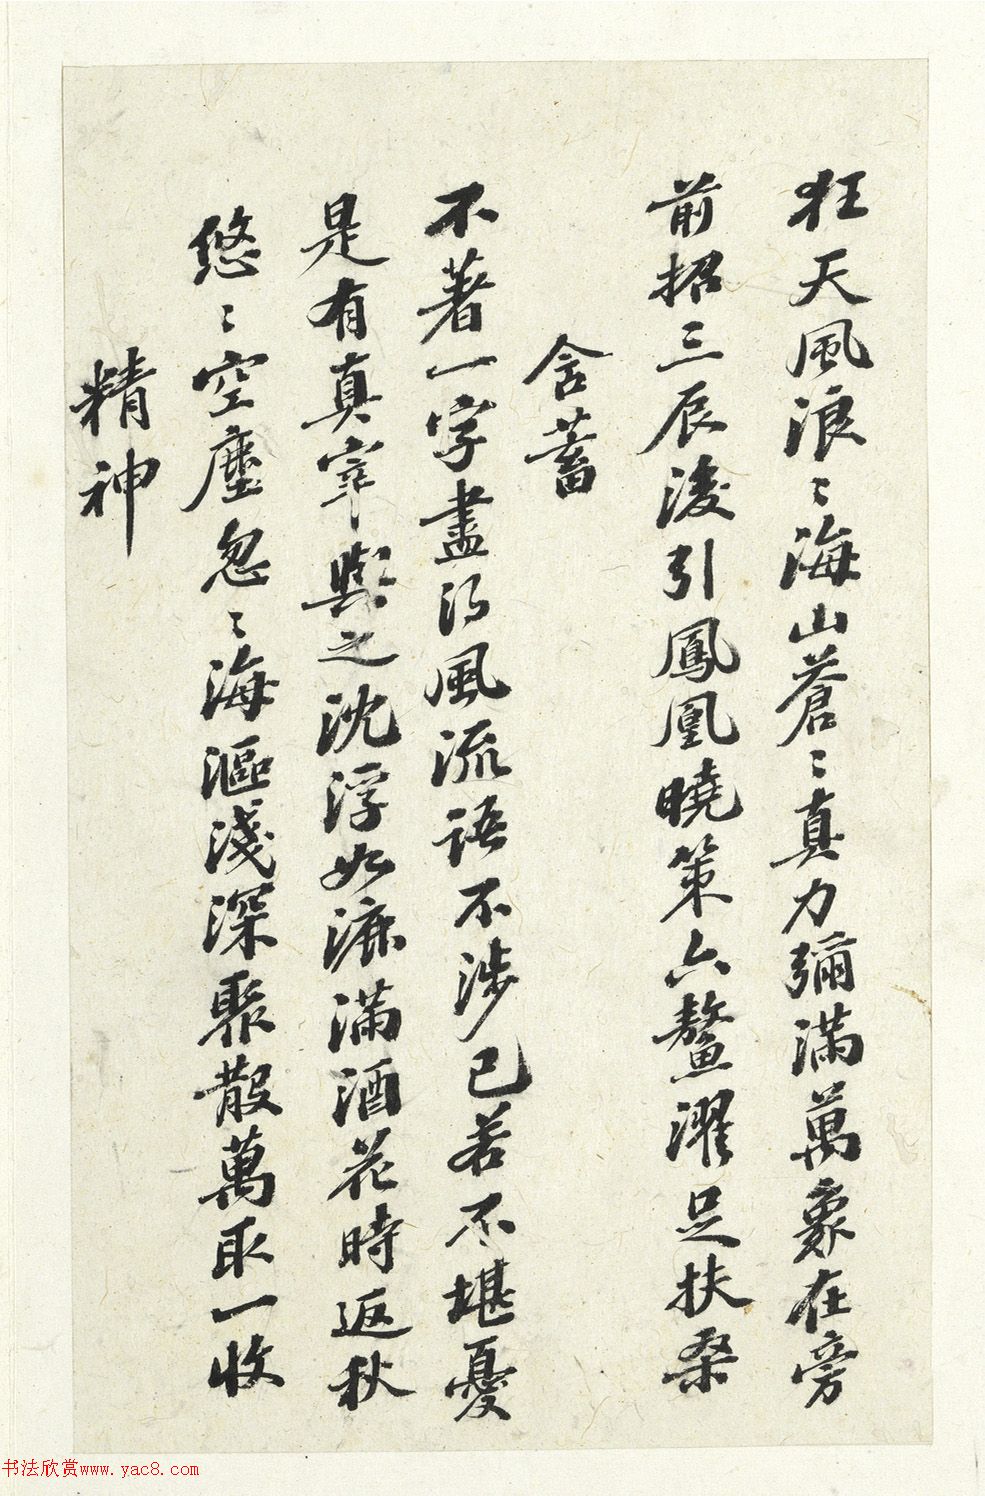 狂天風浪〻海山蒼〻真力彌滿萬象在旁
前招三辰後引鳳凰曉策六鰲濯足扶桑
含蓄
不著一字盡得風流語不涉已若不堪憂
是有真宰與之沈浮如漉滿酒花時返秋
悠〻空塵忽〻海漚淺深聚散萬取一收
精神
书法欣赏www.yac8.com